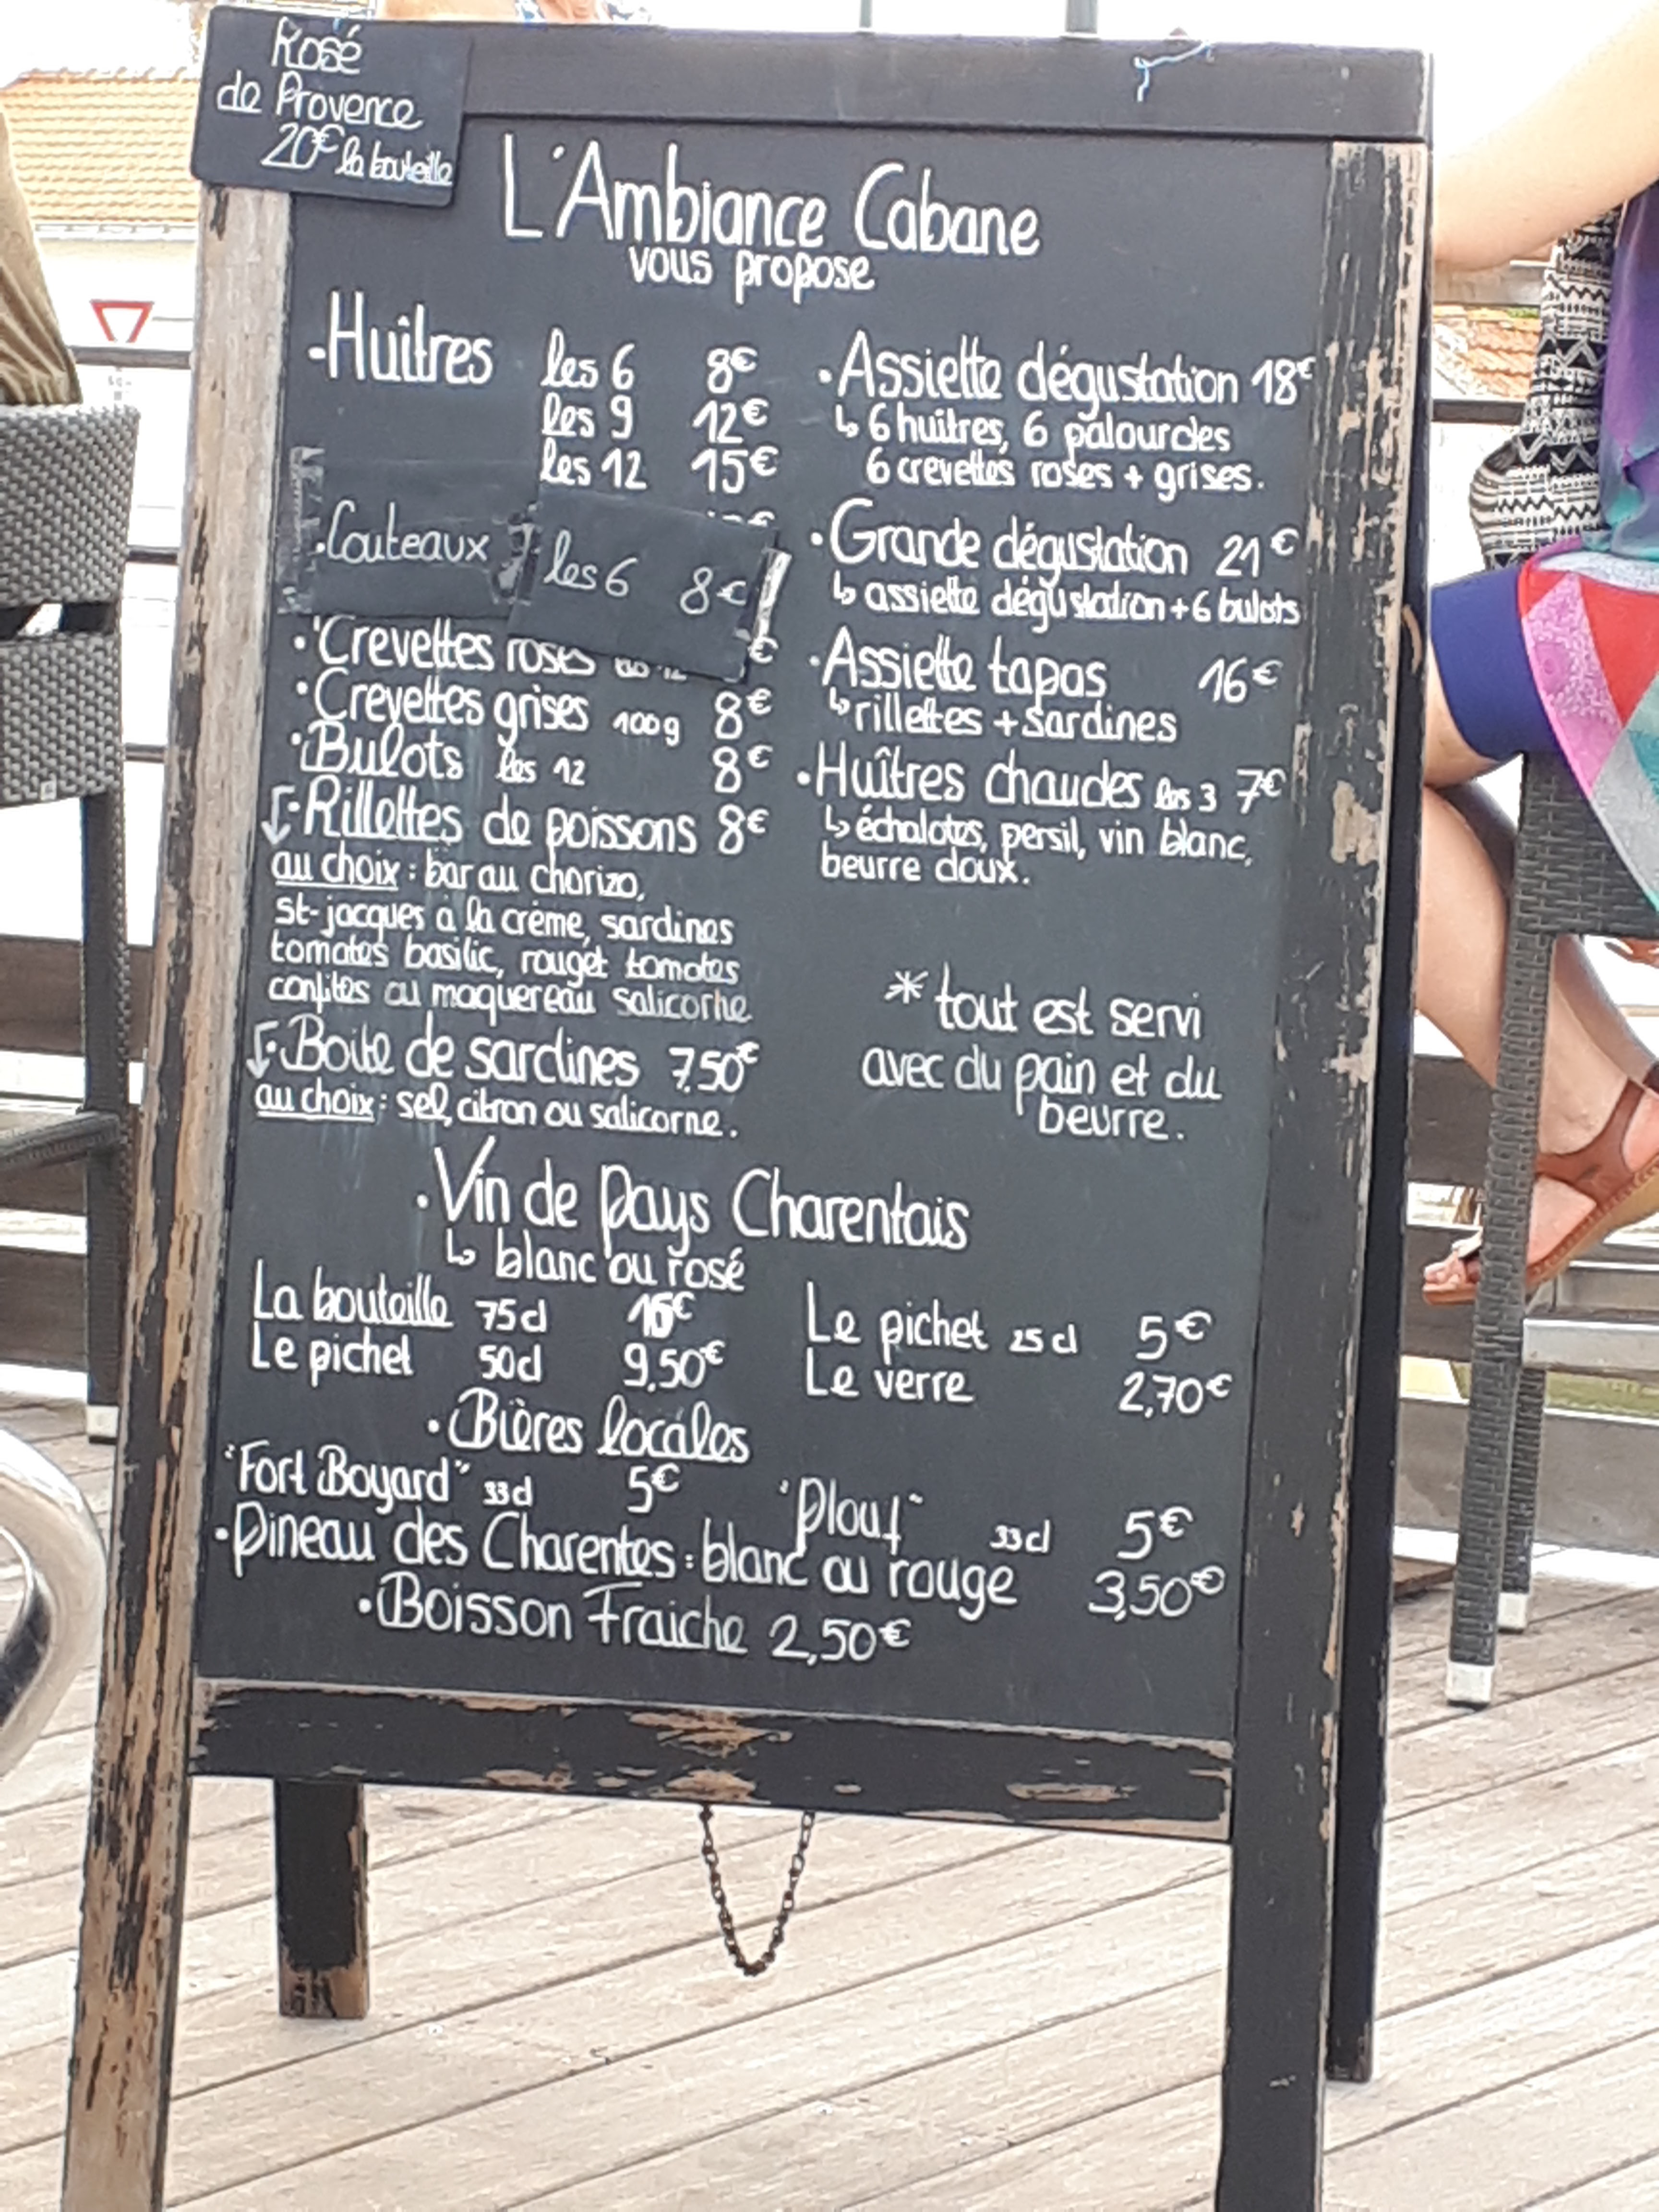 Rosé
de Provence
20€ la bouteille
L'Ambiance Cabane
vous propose
·Huîtres les 6 8€
les 9 12€
les 12 15€
·Couteaux les 6 8€
·Crevettes roses €
·Crevettes grises 100g 8€
·Bulots les 12 8€
·Rillettes de poissons 8€
au choix : bar au chorizo,
St-jacques à la crème, sardines
tomates basilic, rouget tomates
confites ou maquereau salicorne
·Boite de sardines 7,50€
au choix : sel, citron ou salicorne.
·Assiette dégustation 18€
↳ 6 huîtres, 6 palourdes
6 crevettes roses + grises.
·Grande dégustation 21€
↳ assiette dégustation + 6 bulots
·Assiette tapas 16€
↳ rillettes + sardines
·Huîtres chaudes les 3 7€
↳ échalotes, persil, vin blanc,
beurre doux.
* tout est servi
avec du pain et du
beurre.
·Vin de Pays Charentais
↳ blanc ou rosé
La bouteille 75cl 16€
Le pichet 50cl 9,50€
Le pichet 25cl 5€
Le verre 2,70€
·Bières locales
"Fort Boyard" 33cl 5€ "Plouf" 33cl 5€
·Pineau des Charentes : blanc ou rouge 3,50€
·Boisson Fraiche 2,50€